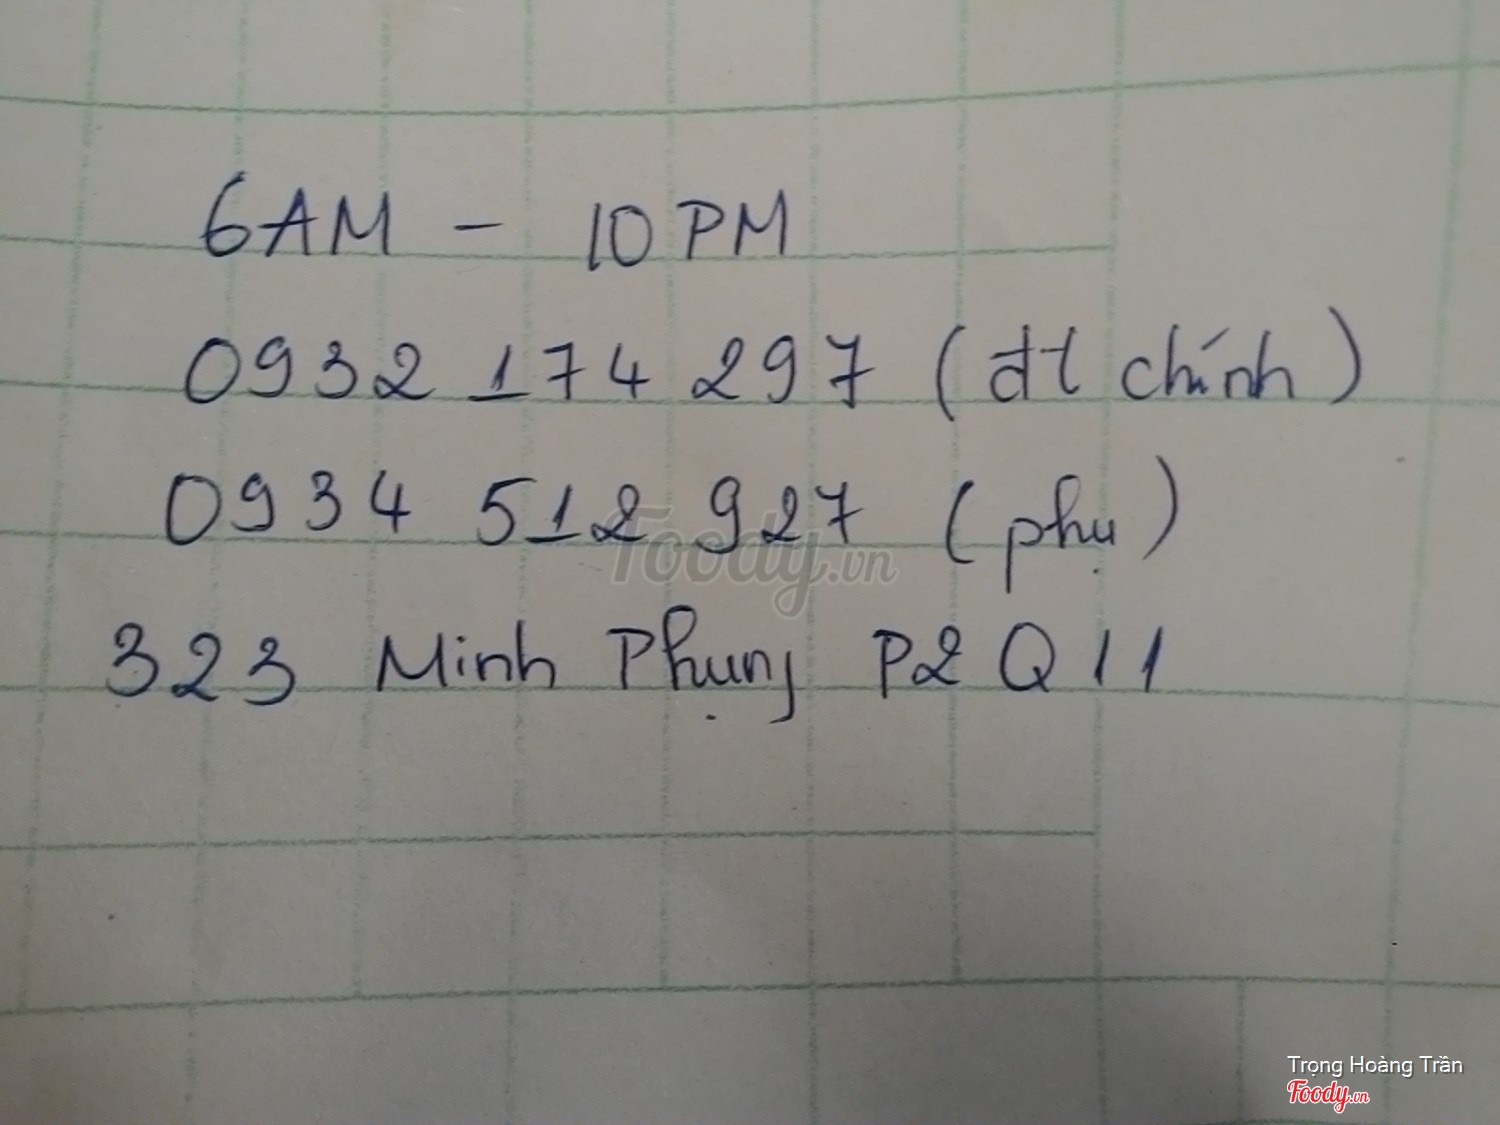 6AM - 10PM
0932 174 297 (đt chính)
0934 512 927 (phụ)
Foody.vn
323 Minh Phụng P2 Q11
Trọng Hoàng Trần
Foody.vn